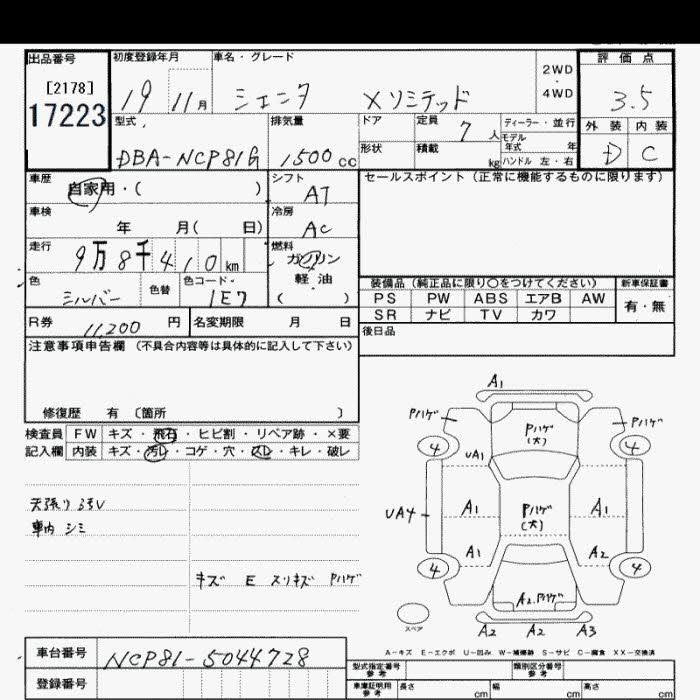 出品番号 初度登録年月 車名・グレード 評価点
[2178] 2WD
17223 19 11月 シエンタ Xリミテッド 4WD 3.5
型式 排気量 ドア 定員 7人 ディーラー・並行 外装 内装
DBA-NCP81G 1500cc 形状 積載 kg モデル年式 年 D C
ハンドル 左・右
車歴 自家用・( ) シフト AT セールスポイント (正常に機能するものに限ります)
車検 年 月( 日) 冷房 AC
走行 9万8千410km 燃料 ガソリン
軽油
( )
色 シルバー 色替 色コード 1E7 装備品 (純正品に限り○をつけてください) 新車保証書
PS PW ABS エアB AW 有・無
SR ナビ TV カワ
R券 11,200円 名変期限 月 日 後日品
注意事項申告欄 (不具合内容等は具体的に記入して下さい)
修復歴 有 〔箇所 〕
検査員 FW キズ・飛石・ヒビ割・リペア跡・×要
記入欄 内装 キズ・汚レ・コゲ・穴・スレ・キレ・破レ
天張り
車内 シミ
キズ E スリキズ Pハゲ
A1
Pハゲ Pハゲ(大) Pハゲ
4 4
UA1
UA4 A1 Pハゲ(大) A1
A1 A2
4 4
A2.Pハゲ
スペア
A2 A2 A3
A-キズ E-エクボ U-凹み W-補修跡 S-サビ C-腐食 XX-交換済
車台番号 NCP81-5044728
登録番号
型式指定番号 参考 類別区分番号 参考
車庫証明用 参考 長さ cm 幅 cm 高さ cm